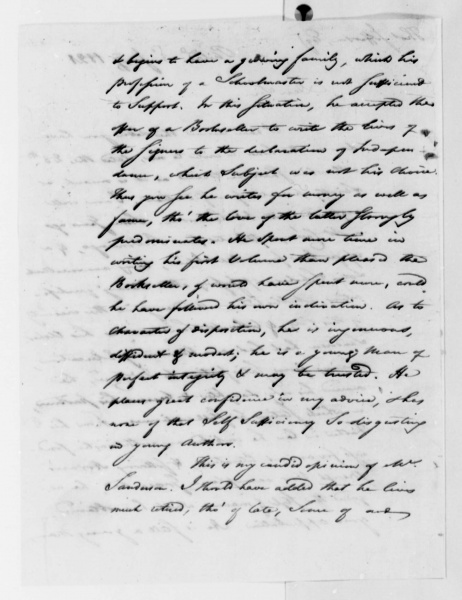 & begins to have a growing family, which his
profession of a Schoolmaster is not sufficient
to Support. In this Situation, he accepted the
offer of a Bookseller to write the lives of
the Signers to the declaration of Indepen
dence, which Subject was not his choice.
Thus you see he writes for money as well as
fame, tho' the love of the latter strongly
predominates. He spent more time in
writing his first Volume than pleased the
Bookseller, & would have spent more, could
he have followed his own inclination. As to
character & disposition, he is ingenuous,
diffident & modest; he is a young Man of
perfect integrity & may be trusted. He
places great confidence in my advice, & has
none of that Self Sufficiency So disgusting
in young Authors.
This is my candid opinion of Mr.
Sanderson. I should have added that he lives
much retired, tho' of late, Some of our